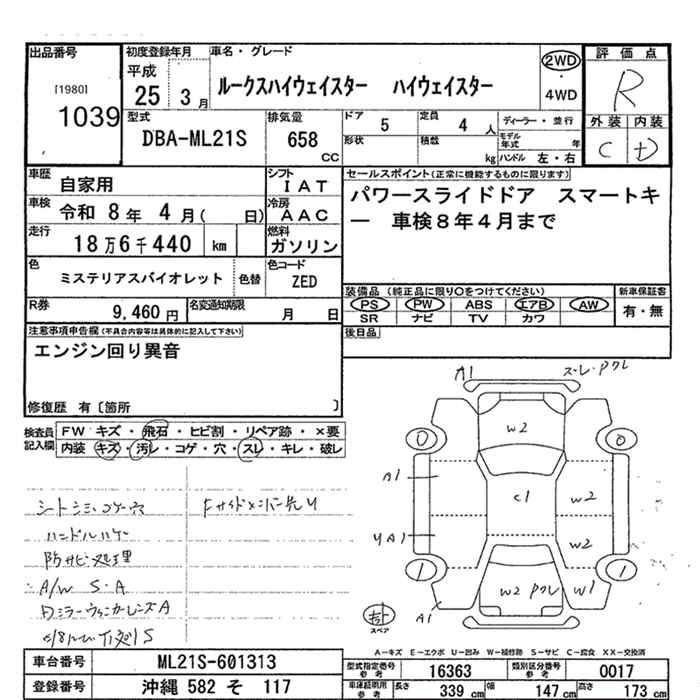 出品番号
[1980]
1039
初度登録年月
平成
25 3月
車名・グレード
ルークスハイウェイスター ハイウェイスター
2WD
・
4WD
評価点
R
外装 内装
C D
型式
DBA-ML21S
排気量
658
cc
ドア 5
定員 4人
ディーラー・並行
形状
積載 kg
モデル年式 年
ハンドル 左・右
車歴 自家用
シフト IAT
車検 令和 8年 4月( 日)
冷房 AAC
走行 18万6千440 km
燃料 ガソリン
色 ミステリアスバイオレット 色替
色コード ZED
R券 9,460円
名変通知期限 月 日
セールスポイント(正常に機能するものに限ります)
パワースライドドア スマートキ
ー 車検8年4月まで
装備品(純正品に限り○をつけてください)
PS PW ABS エアB AW
SR ナビ TV カワ
新車保証書
有・無
後日品
注意事項申告欄(不具合内容等は具体的に記入して下さい)
エンジン回り異音
修復歴 有〔箇所 〕
検査員記入欄
FW キズ・飛石・ヒビ割・リペア跡・×要
内装 キズ・汚レ・コゲ・穴・スレ・キレ・破レ
シートシミ・コゲ穴
ハンドルハゲ
防サビ処理
A/W S・A
DミラーウィンカーレンズA
Fサイドメンバー先U
A1
スレ・Pクレ
W2
0
0
A1
C1
W2
UA1
W2
1
1
W2 Pクレ
W1
A1
スペア
A-キズ E-エクボ U-凹み W-補修跡 S-サビ C-腐食 XX-交換済
車台番号 ML21S-601313
登録番号 沖縄 582 そ 117
型式指定番号 参考 16363
類別区分番号 参考 0017
車庫証明用 参考
長さ 339cm
幅 147cm
高さ 173cm